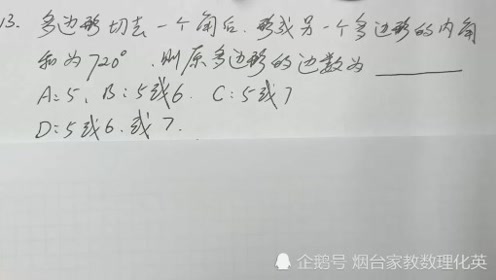 13. 多边形切去一个角后.形成另一个多边形的内角
和为720°.则原多边形的边数为______
A:5、B:5或6. C:5或7
D:5或6.或7.
企鹅号 烟台家教数理化英